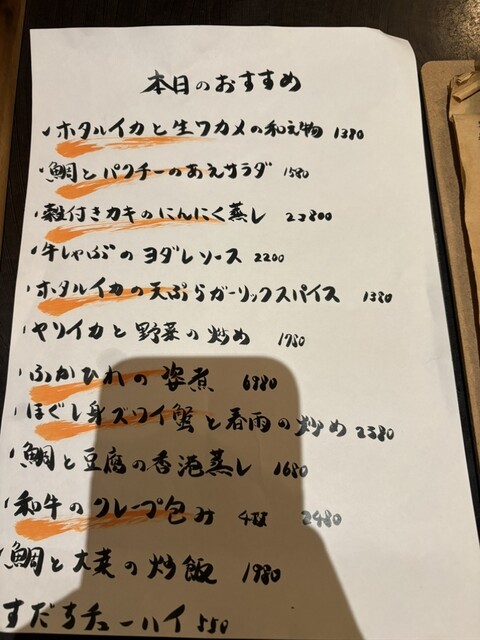 本日のおすすめ
・ホタルイカと生ワカメの和え物 1380
・鯛とパクチーのあえサラダ 1580
・殻付きカキのにんにく蒸し 2コ800
・牛しゃぶのヨダレソース 2200
・ホタルイカの天ぷらガーリックスパイス 1380
・ヤリイカと野菜の炒め 1980
・ふかひれの姿煮 6980
・ほぐし身ズワイ蟹と春雨の炒め 2380
・鯛と豆腐の香港蒸し 1680
・和牛のクレープ包み 4P 2480
・鯛と大葉の炒飯 1980
すだちチューハイ 550